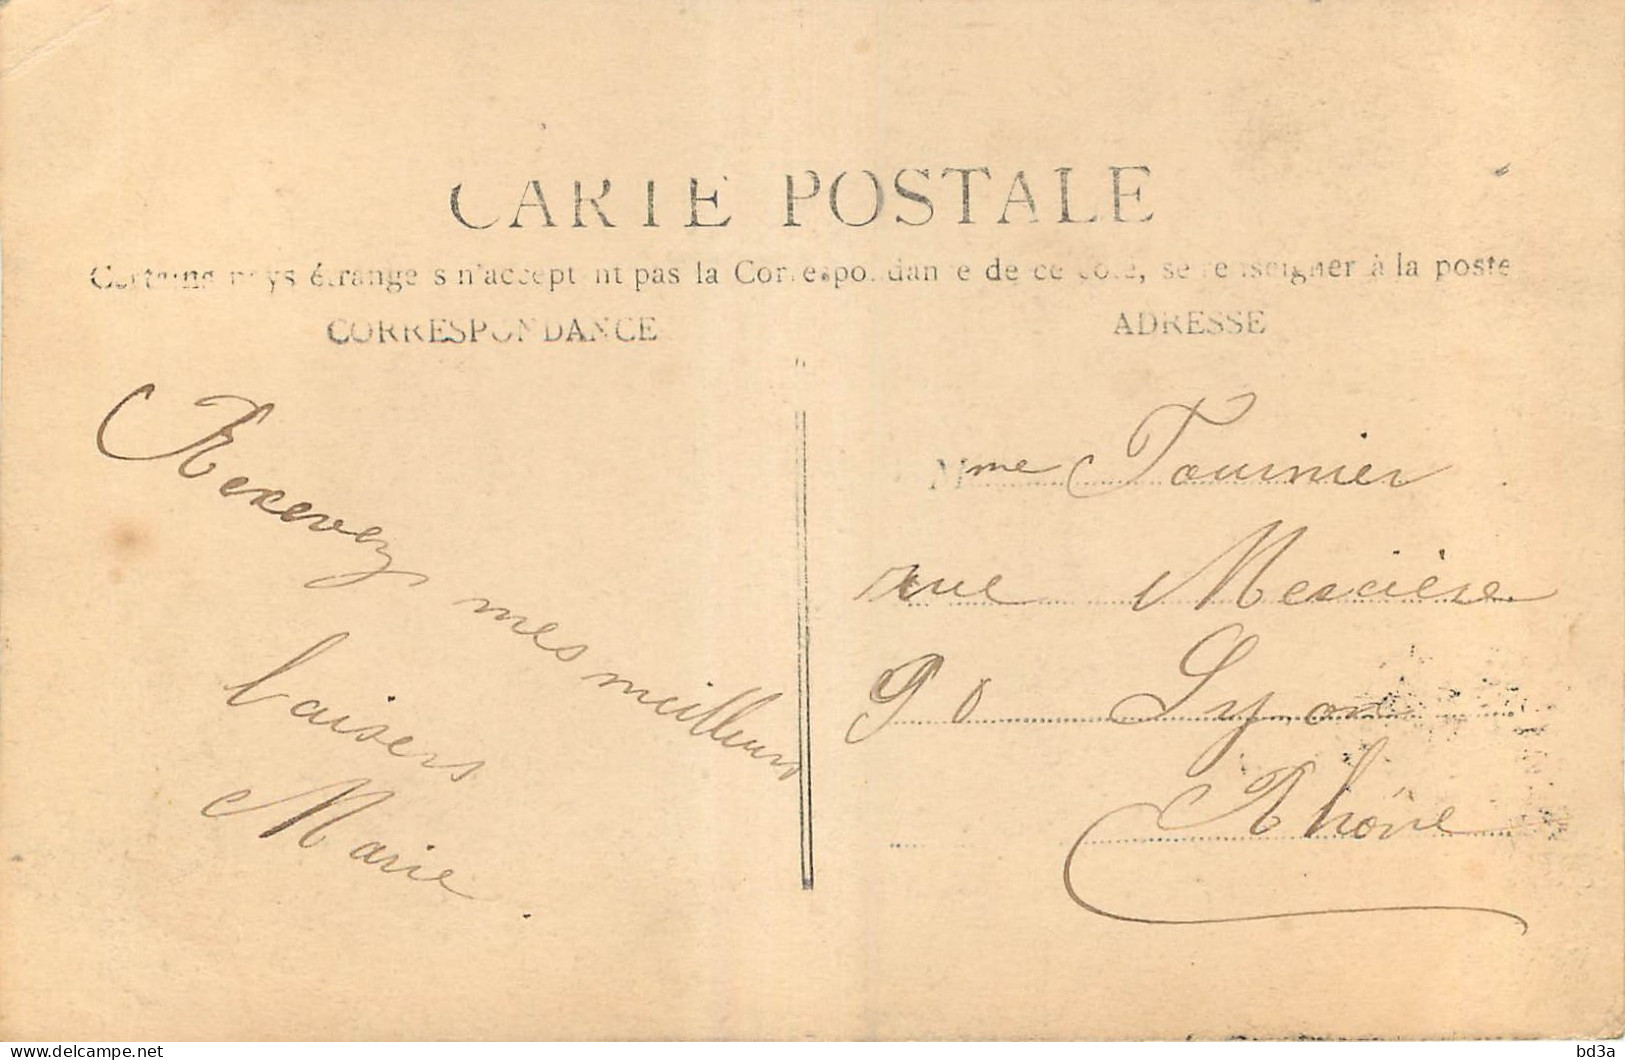 CARTE POSTALE
Certains pays étrangers n'acceptent pas la Correspondance de ce côté, se renseigner à la poste
CORRESPONDANCE
ADRESSE
Recevez mes meilleurs
baisers
Marie.
Mme Tournier
rue Mercière
90 Lyon
Rhône
delcampe.net
bd3a